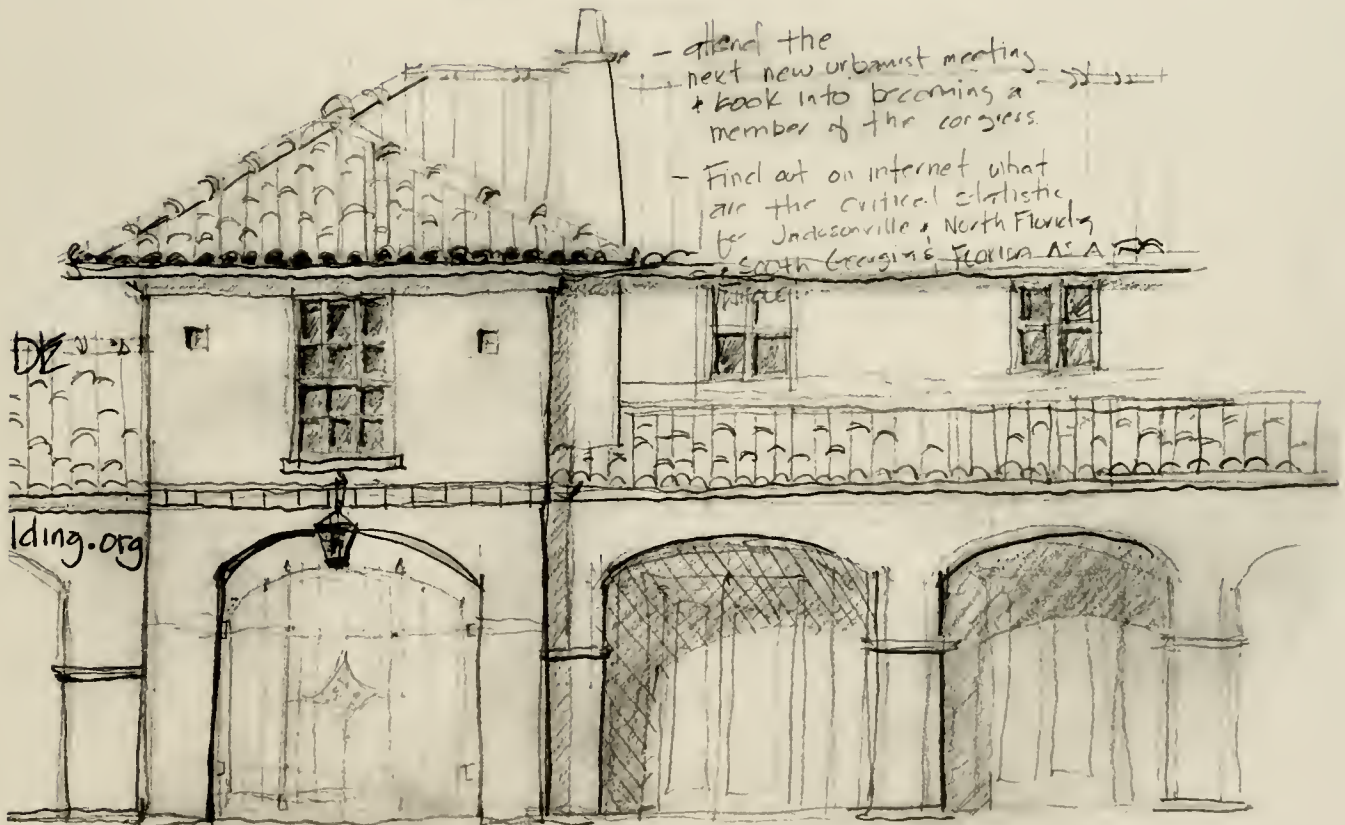 - attend the
next new urbanist meeting
+ look into becoming a
member of the congress.
- Find out on internet what
are the critical statistic
for Jacksonville, North Florida
, South Georgia & FLORIDA AS A
WHOLE
DE
lding.org